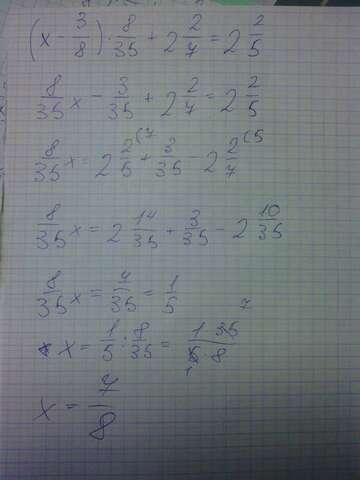 (x - 3/8) · 8/35 + 2 2/7 = 2 2/5
8/35 x - 3/35 + 2 2/7 = 2 2/5
8/35 x = 2 2/5 (7 + 3/35 - 2 2/7 (5
8/35 x = 2 14/35 + 3/35 - 2 10/35
8/35 x = 7/35 = 1/5
x = 1/5 : 8/35 = 1 · 35 7 / 5 · 8 1
x = 7/8